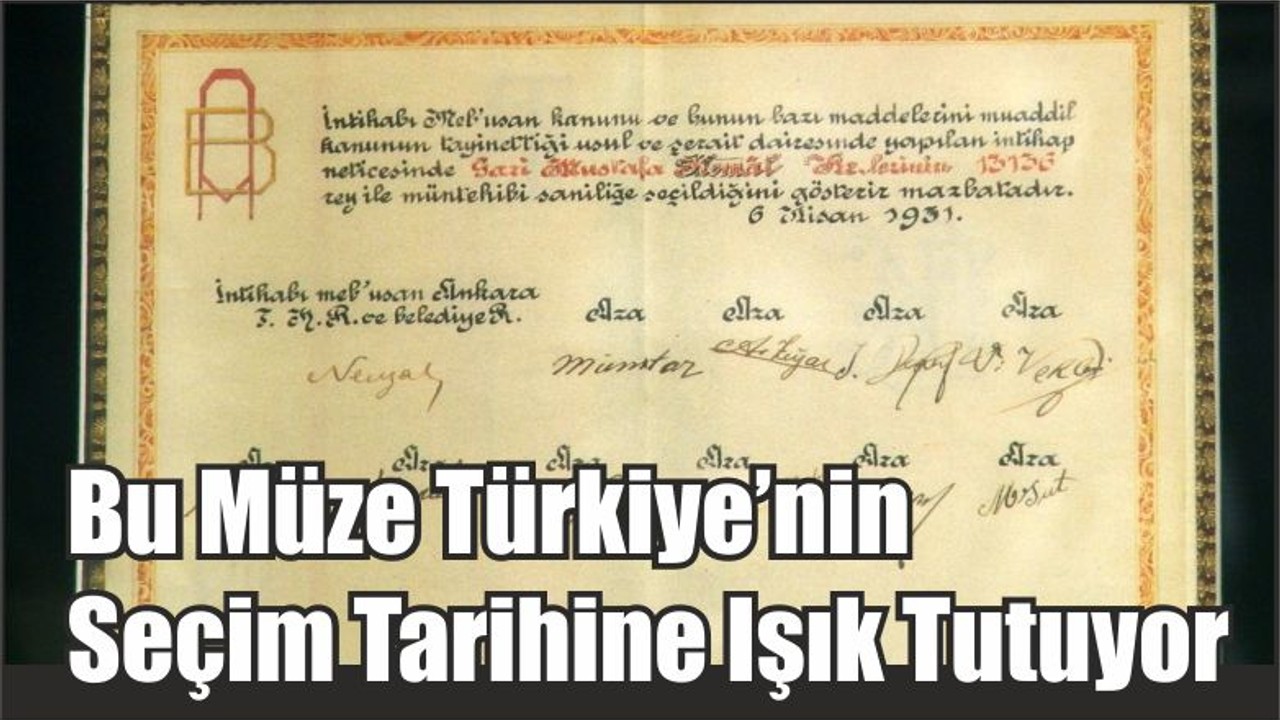 İntikabı Meb'usan kanunu ve bunun bazı maddelerini muaddil
kanunun tayinettiği usul ve şerait dairesinde yapılan intikap
neticesinde Gazi Mustafa Kemâl Hz.lerinin 13136
rey ile müntehibi saniliğe seçildiğini gösterir mazbatadır.
6 Nisan 1931.
İntikabı meb'usan Ankara
T. H. R. ve belediye R.
Aza Aza Aza Aza
Mümtaz
Aza Aza Aza Aza Aza
Mes'ut
Bu Müze Türkiye'nin
Seçim Tarihine Işık Tutuyor